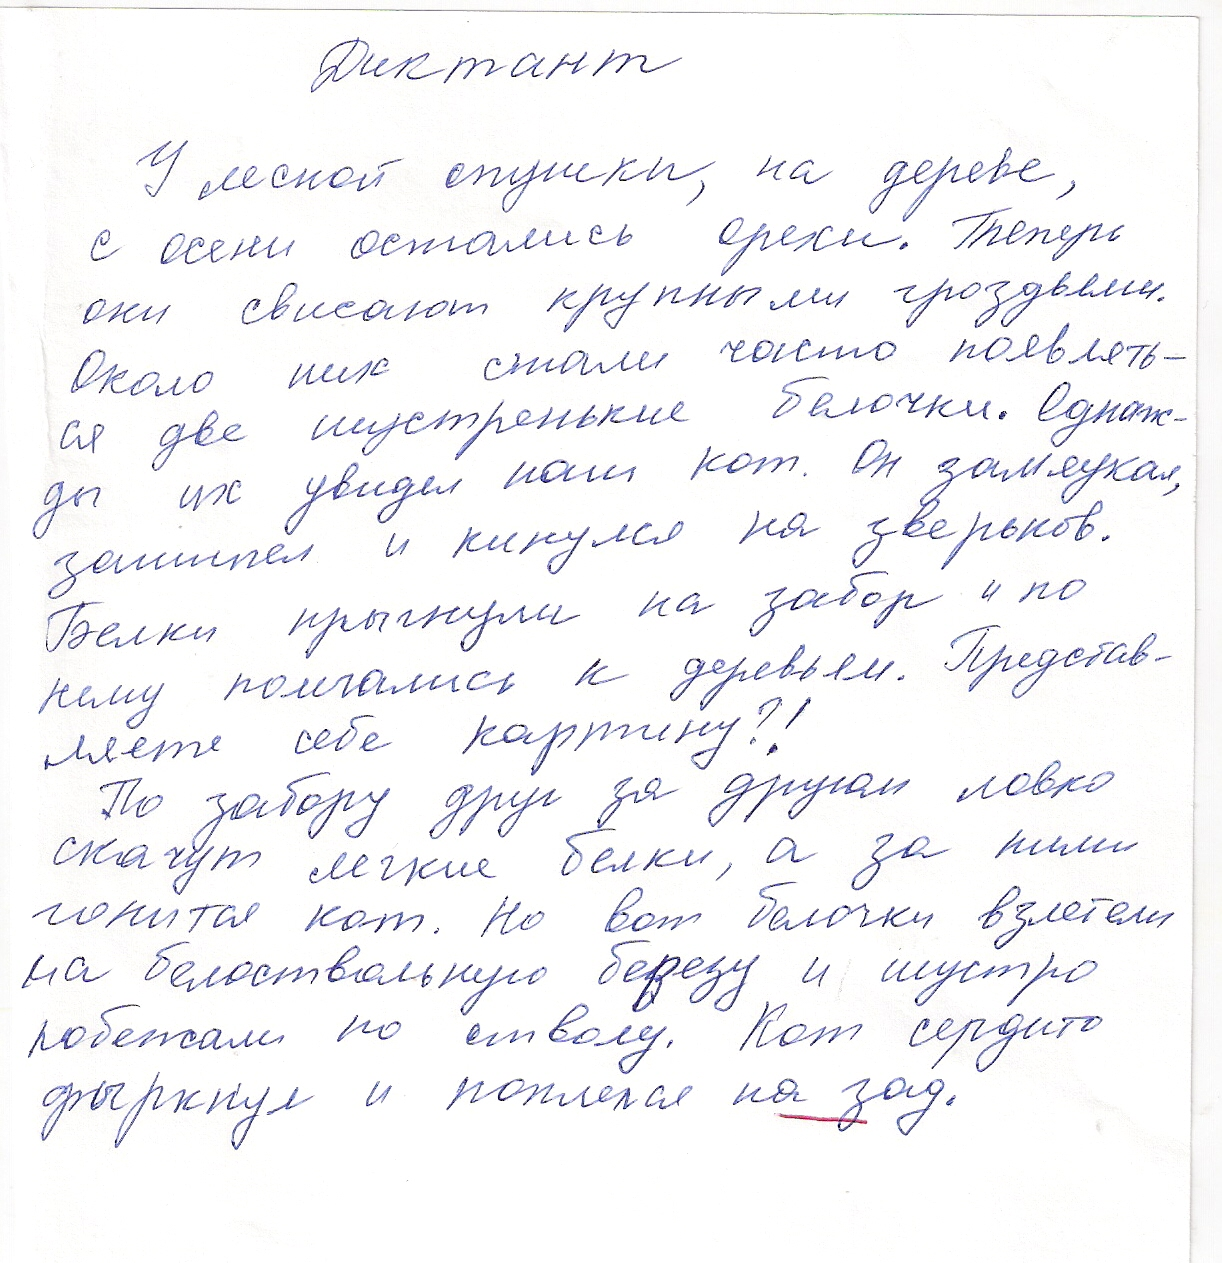 Диктант
У лесной опушки, на дереве,
с осени остались орехи. Теперь
они свисают крупными гроздьями.
Около них стали часто появлять-
ся две шустренькие белочки. Однаж-
ды их увидел наш кот. Он замяукал,
зашипел и кинулся на зверьков.
Белки прыгнули на забор и по
нему помчались к деревьям. Представ-
ляете себе картину?!
По забору друг за другом ловко
скачут легкие белки, а за ними
гонится кот. Но вот белочки взлетели
на белоствольную березу и шустро
побежали по стволу. Кот сердито
фыркнул и поплелся на зад.